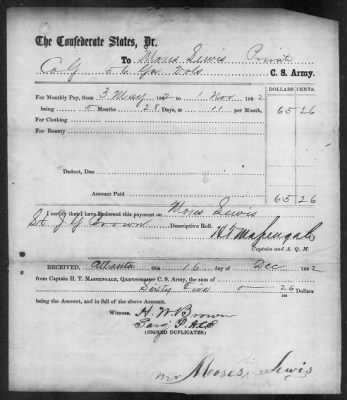 The Confederate States, Dr.
To Moses Lewis Private
Co G Ga Vols C. S. Army.
DOLLARS CENTS.
For Monthly Pay, from 3 May 1862 to 1 Nov 1862
being 5 Months 28 Days, at 11 per Month, 65 26
For Clothing
For Bounty
Deduct, Due
Amount Paid 65 26
I certify that I have endorsed this payment on Moses Lewis
Brown Descriptive Roll. H T Massengale
Captain and A. Q. M.
RECEIVED, Atlanta this 16 day of Dec 1862
from Captain H. T. MASSENGALE, Quartermaster C. S. Army, the sum of
Sixty Five 26/100 Dollars
being the Amount, and in full of the above Account.
Witness, H. W. Brown
(SIGNED DUPLICATES.)
Moses Lewis